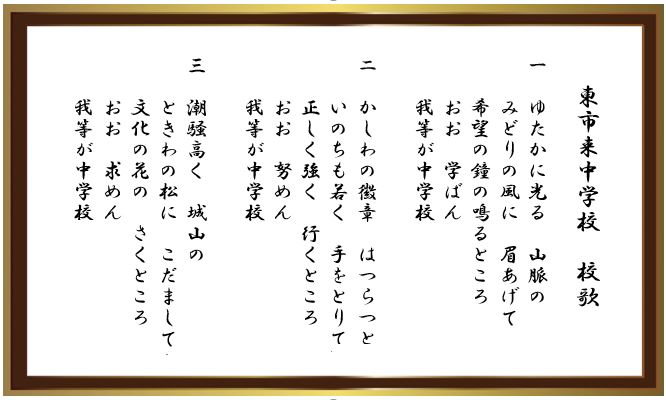 東市来中学校　校歌
一　ゆたかに光る　山脈の
みどりの風に　眉あげて
希望の鐘の鳴るところ
おお　学ばん
我等が中学校
二　かしわの徽章　はつらつと
いのちも若く　手をとりて
正しく強く　行くところ
おお　努めん
我等が中学校
三　潮騒高く　城山の
ときわの松に　こだまして
文化の花の　さくところ
おお　求めん
我等が中学校